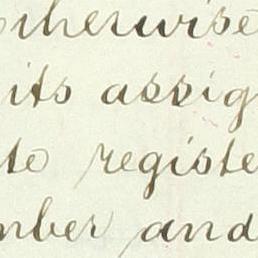 otherwise
its assig
te registe
mber and